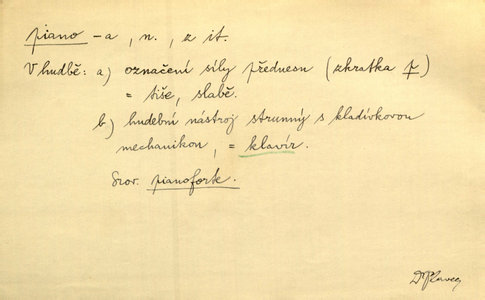 piano -a, n., z it.
V hudbě: a) označení síly přednesu (zkratka p)
= tiše, slabě.
b) hudební nástroj strunný s kladívkovou
mechanikou, = klavír.
Srov. pianoforte.